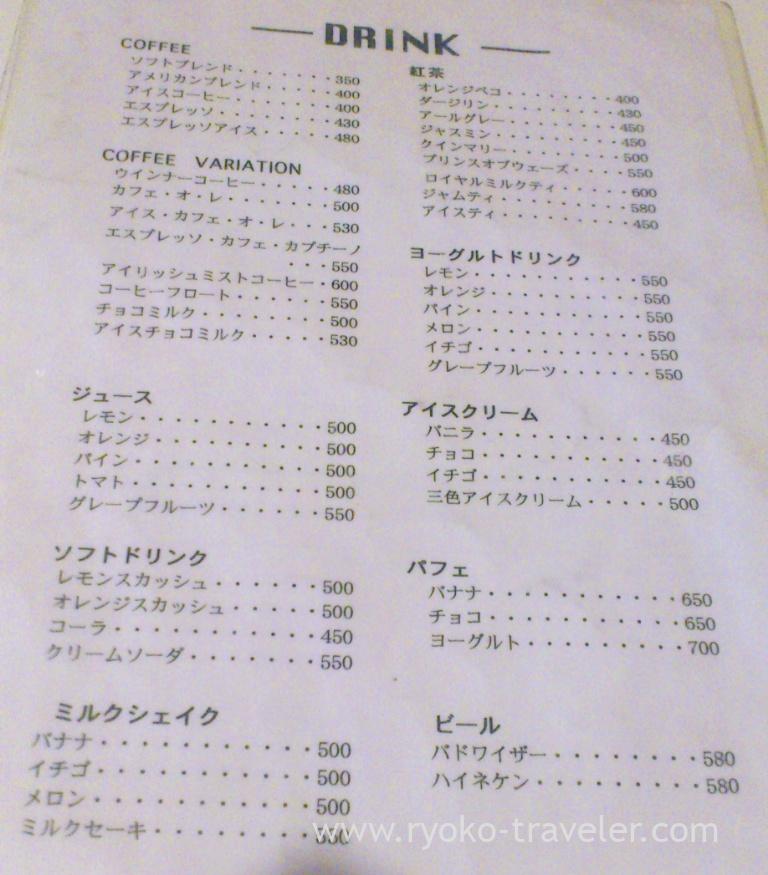 DRINK
COFFEE
ソフトブレンド・・・・・・・350
アメリカンブレンド・・・・・400
アイスコーヒー・・・・・・・400
エスプレッソ・・・・・・・・430
エスプレッソアイス・・・・・480
COFFEE VARIATION
ウインナーコーヒー・・・・・480
カフェ・オ・レ・・・・・・・500
アイス・カフェ・オ・レ・・・530
エスプレッソ・カフェ・カプチーノ
・・・550
アイリッシュミストコーヒー・600
コーヒーフロート・・・・・・550
チョコミルク・・・・・・・・500
アイスチョコミルク・・・・・530
ジュース
レモン・・・・・・・・・・・500
オレンジ・・・・・・・・・・500
パイン・・・・・・・・・・・500
トマト・・・・・・・・・・・500
グレープフルーツ・・・・・・550
ソフトドリンク
レモンスカッシュ・・・・・・500
オレンジスカッシュ・・・・・500
コーラ・・・・・・・・・・・450
クリームソーダ・・・・・・・550
ミルクシェイク
バナナ・・・・・・・・・・・500
イチゴ・・・・・・・・・・・500
メロン・・・・・・・・・・・500
ミルクセーキ・・・・・・・・
紅茶
オレンジペコ・・・・・・・・400
ダージリン・・・・・・・・・430
アールグレー・・・・・・・・450
ジャスミン・・・・・・・・・450
クインマリー・・・・・・・・500
プリンスオブウェーズ・・・・550
ロイヤルミルクティ・・・・・600
ジャムティ・・・・・・・・・580
アイスティ・・・・・・・・・450
ヨーグルトドリンク
レモン・・・・・・・・・・・550
オレンジ・・・・・・・・・・550
パイン・・・・・・・・・・・550
メロン・・・・・・・・・・・550
イチゴ・・・・・・・・・・・550
グレープフルーツ・・・・・・550
アイスクリーム
バニラ・・・・・・・・・・・450
チョコ・・・・・・・・・・・450
イチゴ・・・・・・・・・・・450
三色アイスクリーム・・・・・500
パフェ
バナナ・・・・・・・・・・・650
チョコ・・・・・・・・・・・650
ヨーグルト・・・・・・・・・700
ビール
バドワイザー・・・・・・・・580
ハイネケン・・・・・・・・・580
www.ryoko-traveler.com